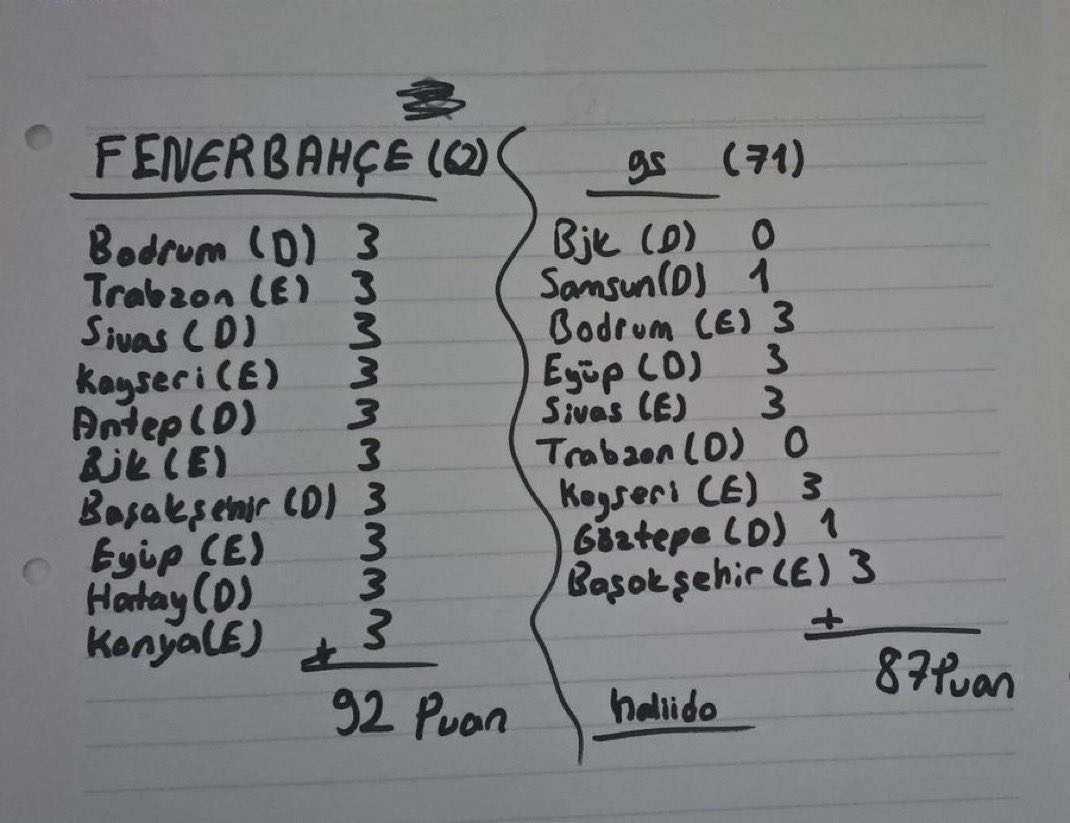 FENERBAHÇE (62)
Bodrum (D) 3
Trabzon (E) 3
Sivas (D) 3
Kayseri (E) 3
Antep (D) 3
Bjk (E) 3
Başakşehir (D) 3
Eyüp (E) 3
Hatay (D) 3
Konya (E) 3
+
92 Puan
gs (71)
Bjk (D) 0
Samsun (D) 1
Bodrum (E) 3
Eyüp (D) 3
Sivas (E) 3
Trabzon (D) 0
Kayseri (E) 3
Göztepe (D) 1
Başakşehir (E) 3
+
87 Puan
haliido